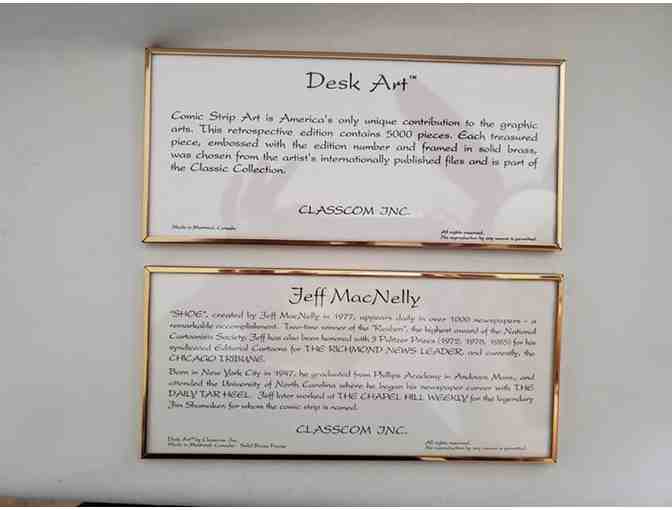 Desk Art™
Comic Strip Art is America's only unique contribution to the graphic
arts. This retrospective edition contains 5000 pieces. Each treasured
piece, embossed with the edition number and framed in solid brass,
was chosen from the artist's internationally published files and is part of
the Classic Collection.
CLASSCOM INC.
Made in Montreal, Canada
All rights reserved.
No reproduction by any means is permitted.
Jeff MacNelly
"SHOE", created by Jeff MacNelly in 1977, appears daily in over 1000 newspapers - a
remarkable accomplishment. Two-time winner of the "Reuben", the highest award of the National
Cartoonists Society, Jeff has also been honored with 3 Pulitzer Prizes (1972, 1978, 1985) for his
syndicated Editorial Cartoons for THE RICHMOND NEWS LEADER, and currently, the
CHICAGO TRIBUNE.
Born in New York City in 1947, he graduated from Phillips Academy in Andover, Mass., and
attended the University of North Carolina where he began his newspaper career with THE
DAILY TAR HEEL. Jeff later worked at THE CHAPEL HILL WEEKLY for the legendary
Jim Shumaker for whom the comic strip is named.
CLASSCOM INC.
Desk Art™ by Classcom Inc.
Made in Montreal, Canada - Solid Brass Frame
All rights reserved.
No reproduction by any means is permitted.